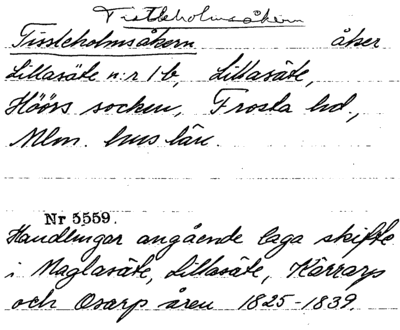 Tistleholmsåkern
Tissleholmsåkern åker
Lillasäte n:r 1 b, Lillasäte,
Höörs socken, Frosta hd.,
Mlm. hus län.
Nr 5559.
Handlingar angående laga skifte
i Maglasäte, Lillasäte, Kärrarp
och Osarp åren 1825-1839.